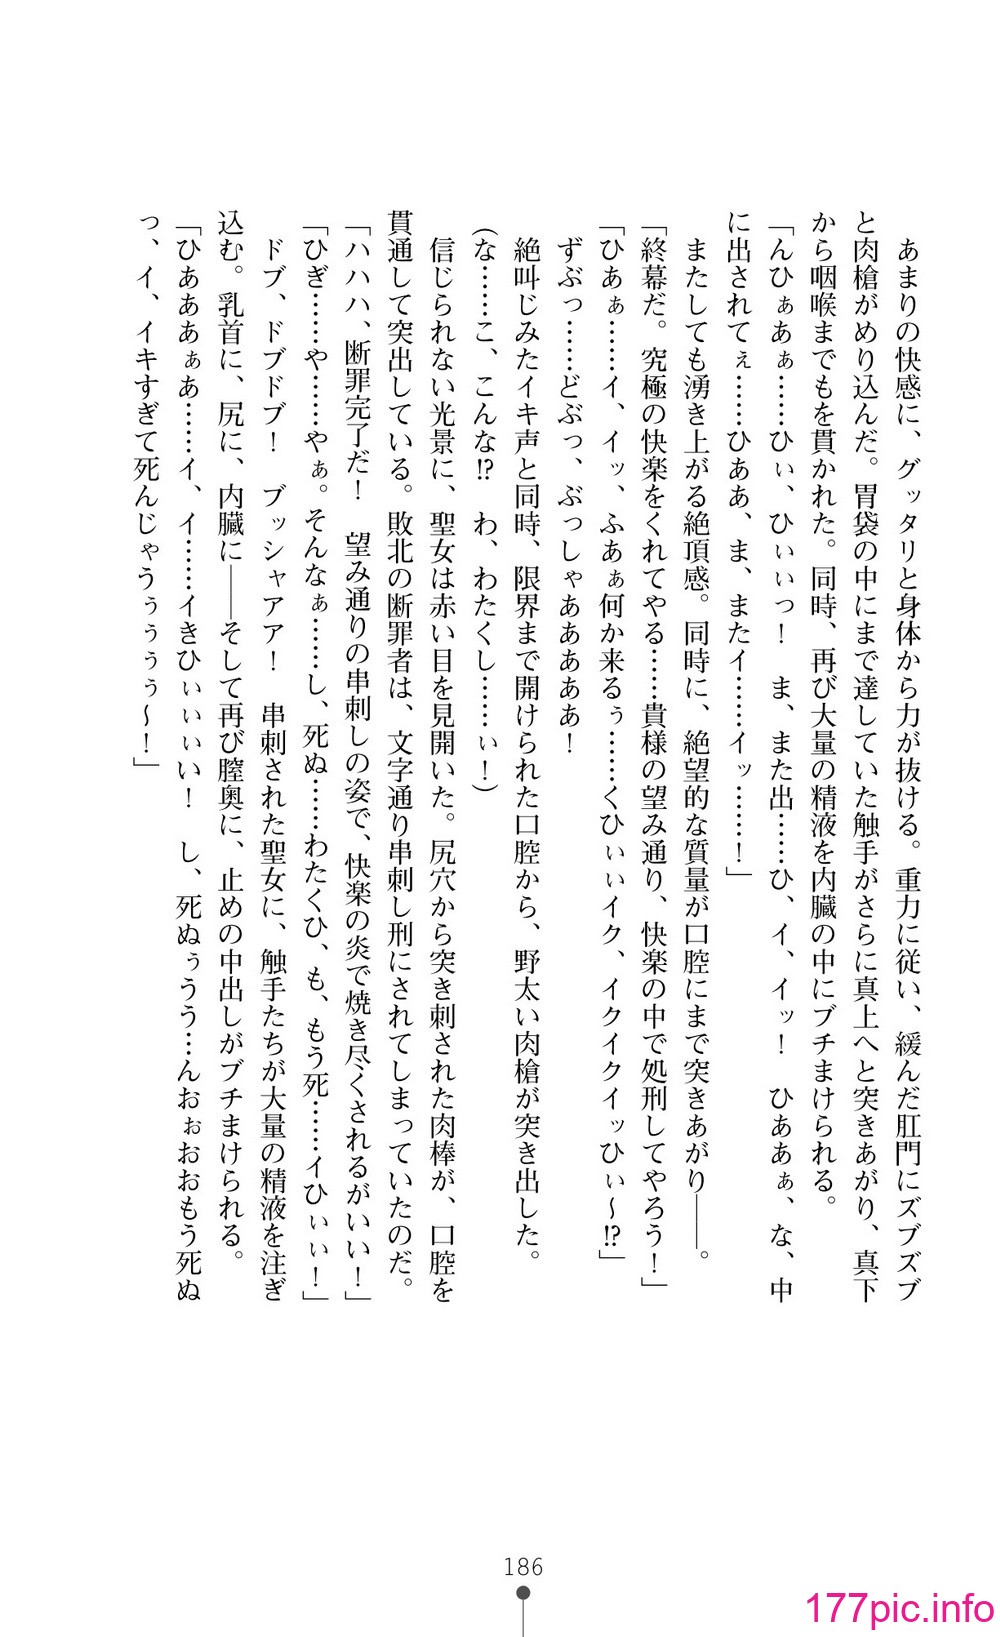 あまりの快感に、グッタリと身体から力が抜ける。重力に従い、緩んだ肛門にズブズブ
と肉槍がめり込んだ。胃袋の中にまで達していた触手がさらに真上へと突きあがり、真下
から咽喉までもを貫かれた。同時、再び大量の精液を内臓の中にブチまけられる。
「んひぁあぁ……ひぃ、ひぃぃっ！　ま、また出……ひ、イ、イッ！　ひああぁ、な、中
に出されてぇ……ひああ、ま、またイ……イッ……！」
またしても湧き上がる絶頂感。同時に、絶望的な質量が口腔にまで突きあがり――。
「終幕だ。究極の快楽をくれてやる……貴様の望み通り、快楽の中で処刑してやろう！」
「ひあぁ……イ、イッ、ふあぁ何か来るぅ……くひぃぃイク、イクイクイッひぃ～!?」
ずぶっ……どぶっ、ぶっしゃああああ！
絶叫じみたイキ声と同時、限界まで開けられた口腔から、野太い肉槍が突き出した。
（な……こ、こんな!?　わ、わたくし……ぃ！）
信じられない光景に、聖女は赤い目を見開いた。尻穴から突き刺された肉棒が、口腔を
貫通して突出している。敗北の断罪者は、文字通り串刺し刑にされてしまっていたのだ。
「ハハハ、断罪完了だ！　望み通りの串刺しの姿で、快楽の炎で焼き尽くされるがいい！」
「ひぎ……や……やぁ。そんなぁ……し、死ぬ……わたくひ、も、もう死……イひぃぃ！」
ドブ、ドブドブ！　ブッシャアア！　串刺された聖女に、触手たちが大量の精液を注ぎ
込む。乳首に、尻に、内臓に――そして再び膣奥に、止めの中出しがブチまけられる。
「ひあああぁあ……イ、イ……イきひぃぃぃい！　し、死ぬぅうう…んおぉおおもう死ぬ
っ、イ、イキすぎて死んじゃうぅぅぅぅ～！」
186
177pic.info